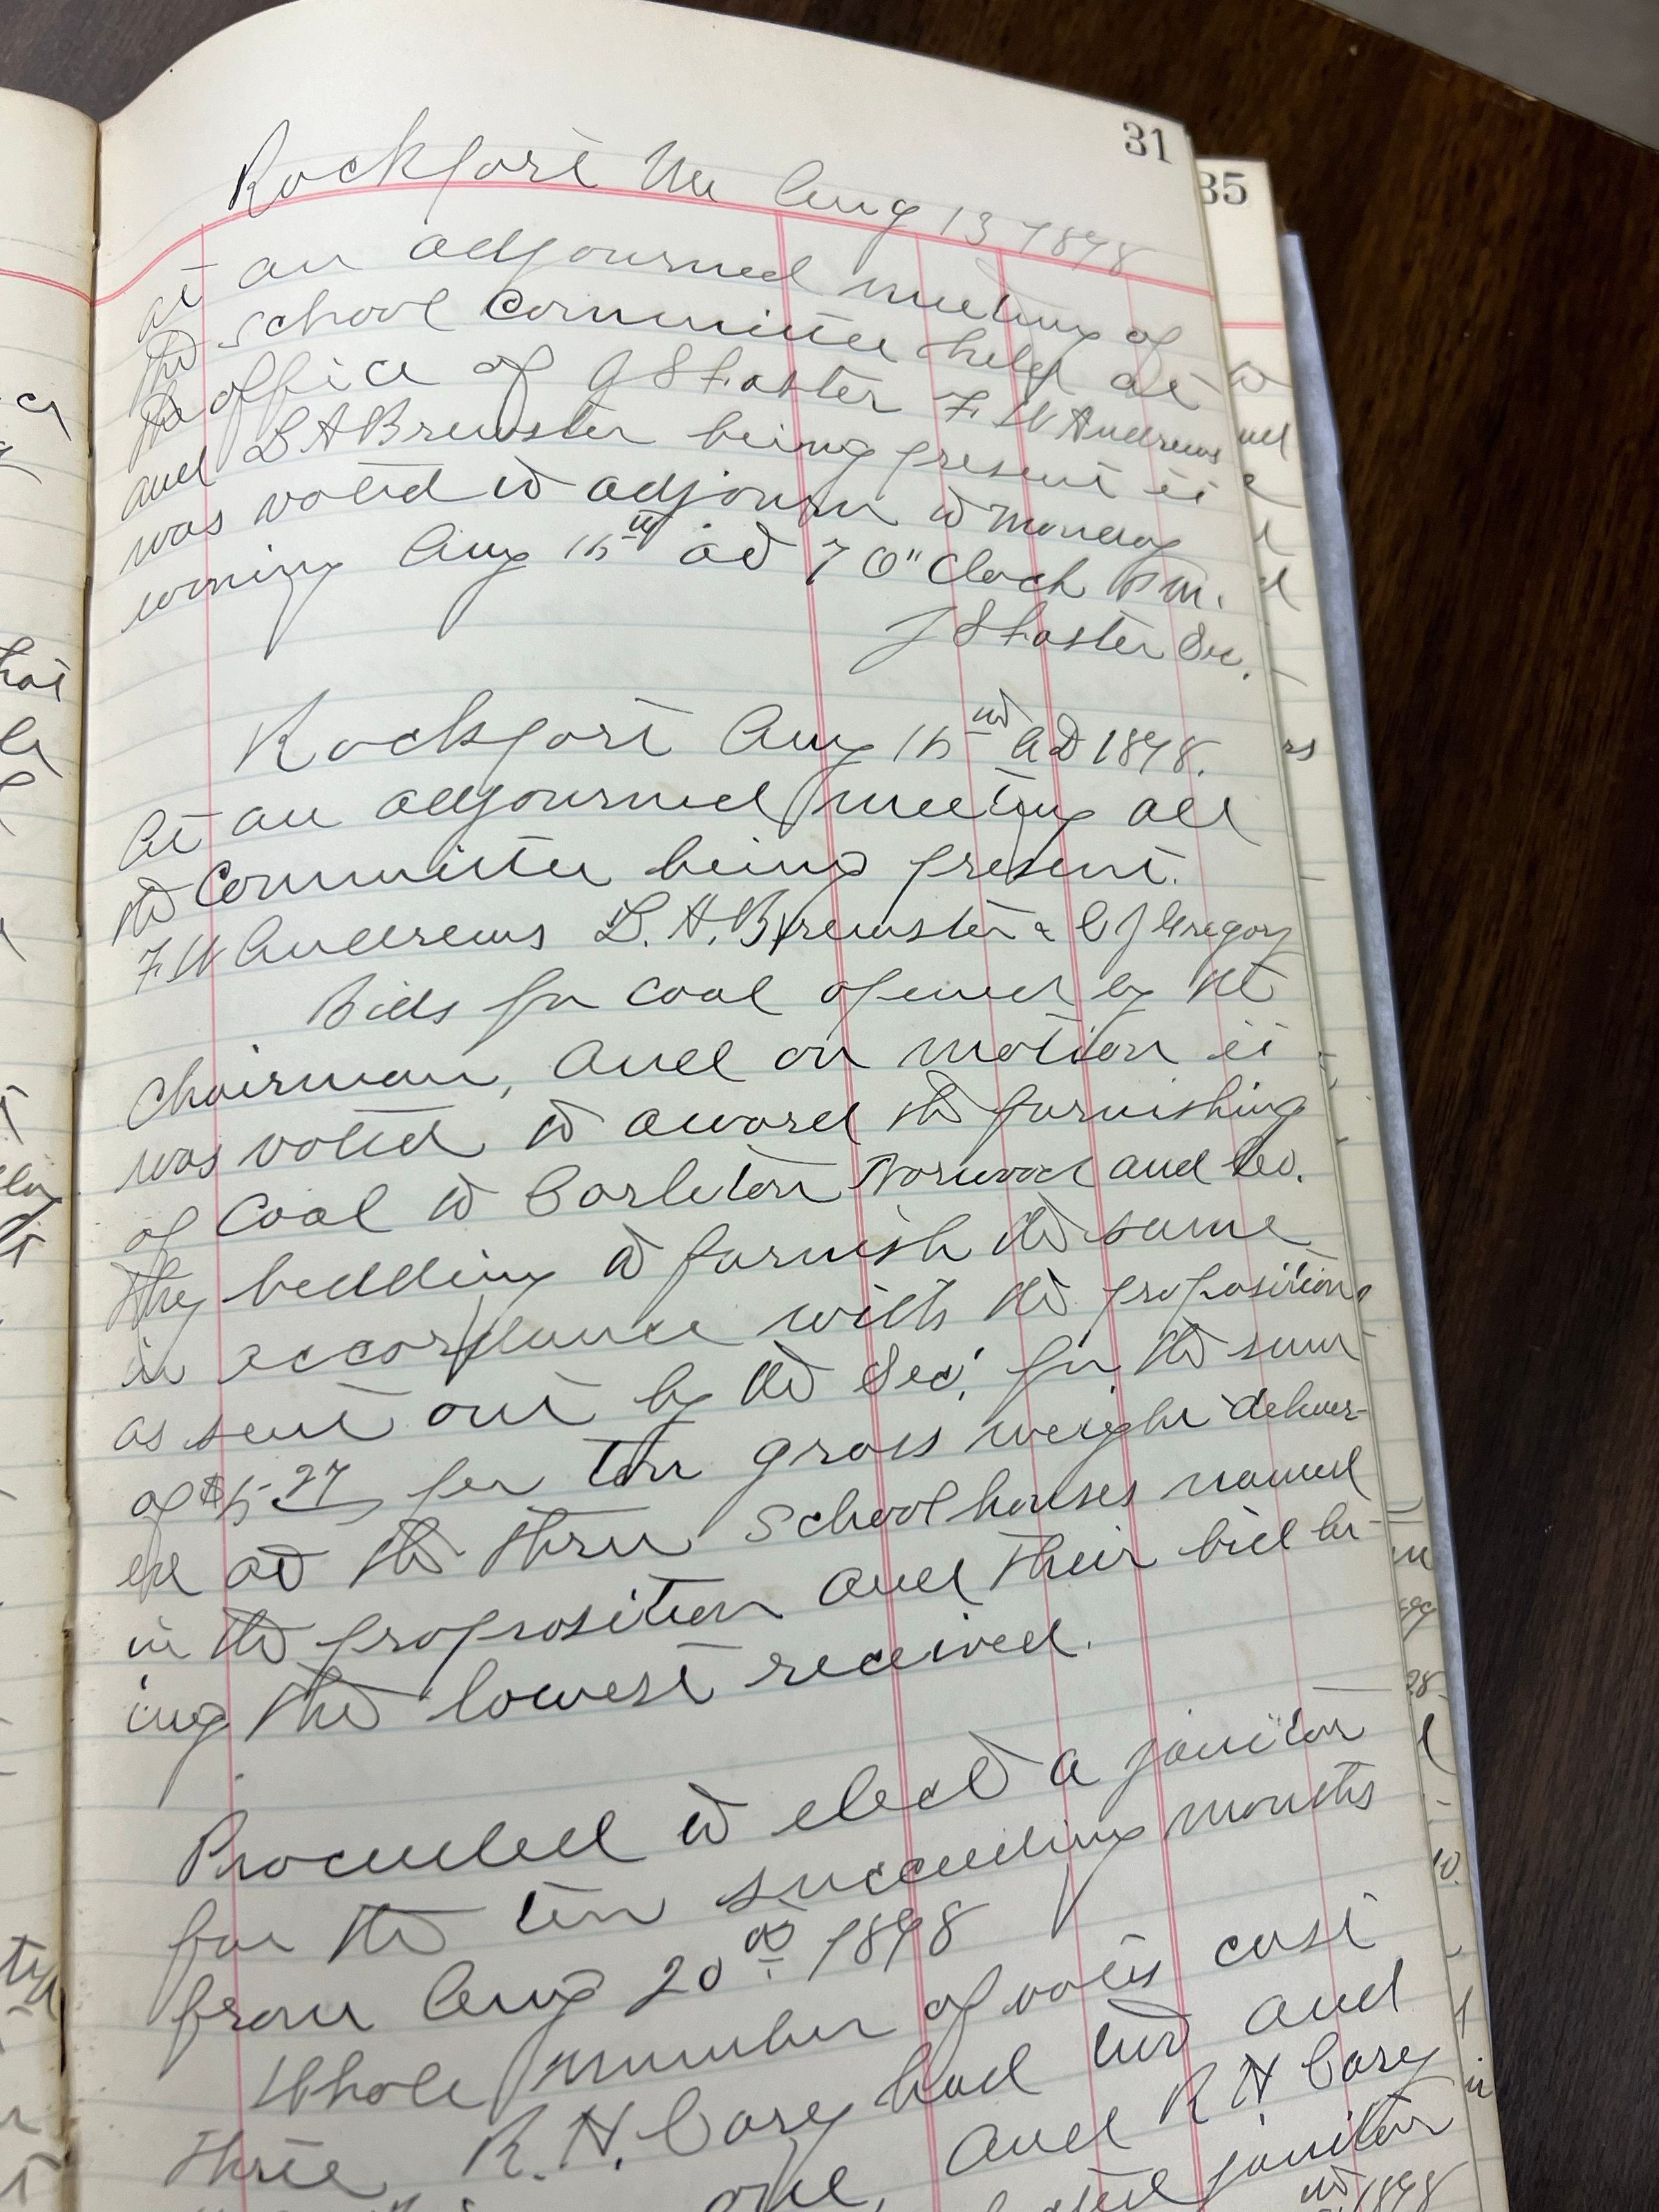 31
35
Rockport Me Aug 13 1898
at an adjourned meeting of
the school committee held at
the office of J S Foster F W Andrews
and L A Brewster being present it
was voted to adjourn to Monday
evening Aug 15th at 7 O" Clock P M.
J S Foster Sec.
Rockport Aug 15 AD 1898.
At an adjourned meeting all
the Committee being present.
F W Andrews L. A. Brewster & C J Gregory
Bids for Coal opened by the
Chairman, and on motion it
was voted to award the furnishing
of Coal to Carleton Norwood and Co.
they bedding to furnish the same
in accordance with the proposition
as sent out by the Sec. for the sum
of $5.27 per ton gross weight deliver-
ed at the three School houses named
in the proposition and their bid be-
ing the lowest received.
Proceeded to elect a janitor
for the ten succeeding months
from Aug 20 1898
Whole number of votes cast
three R. H. Carey had two and
one, and R H Carey
janitor
1898